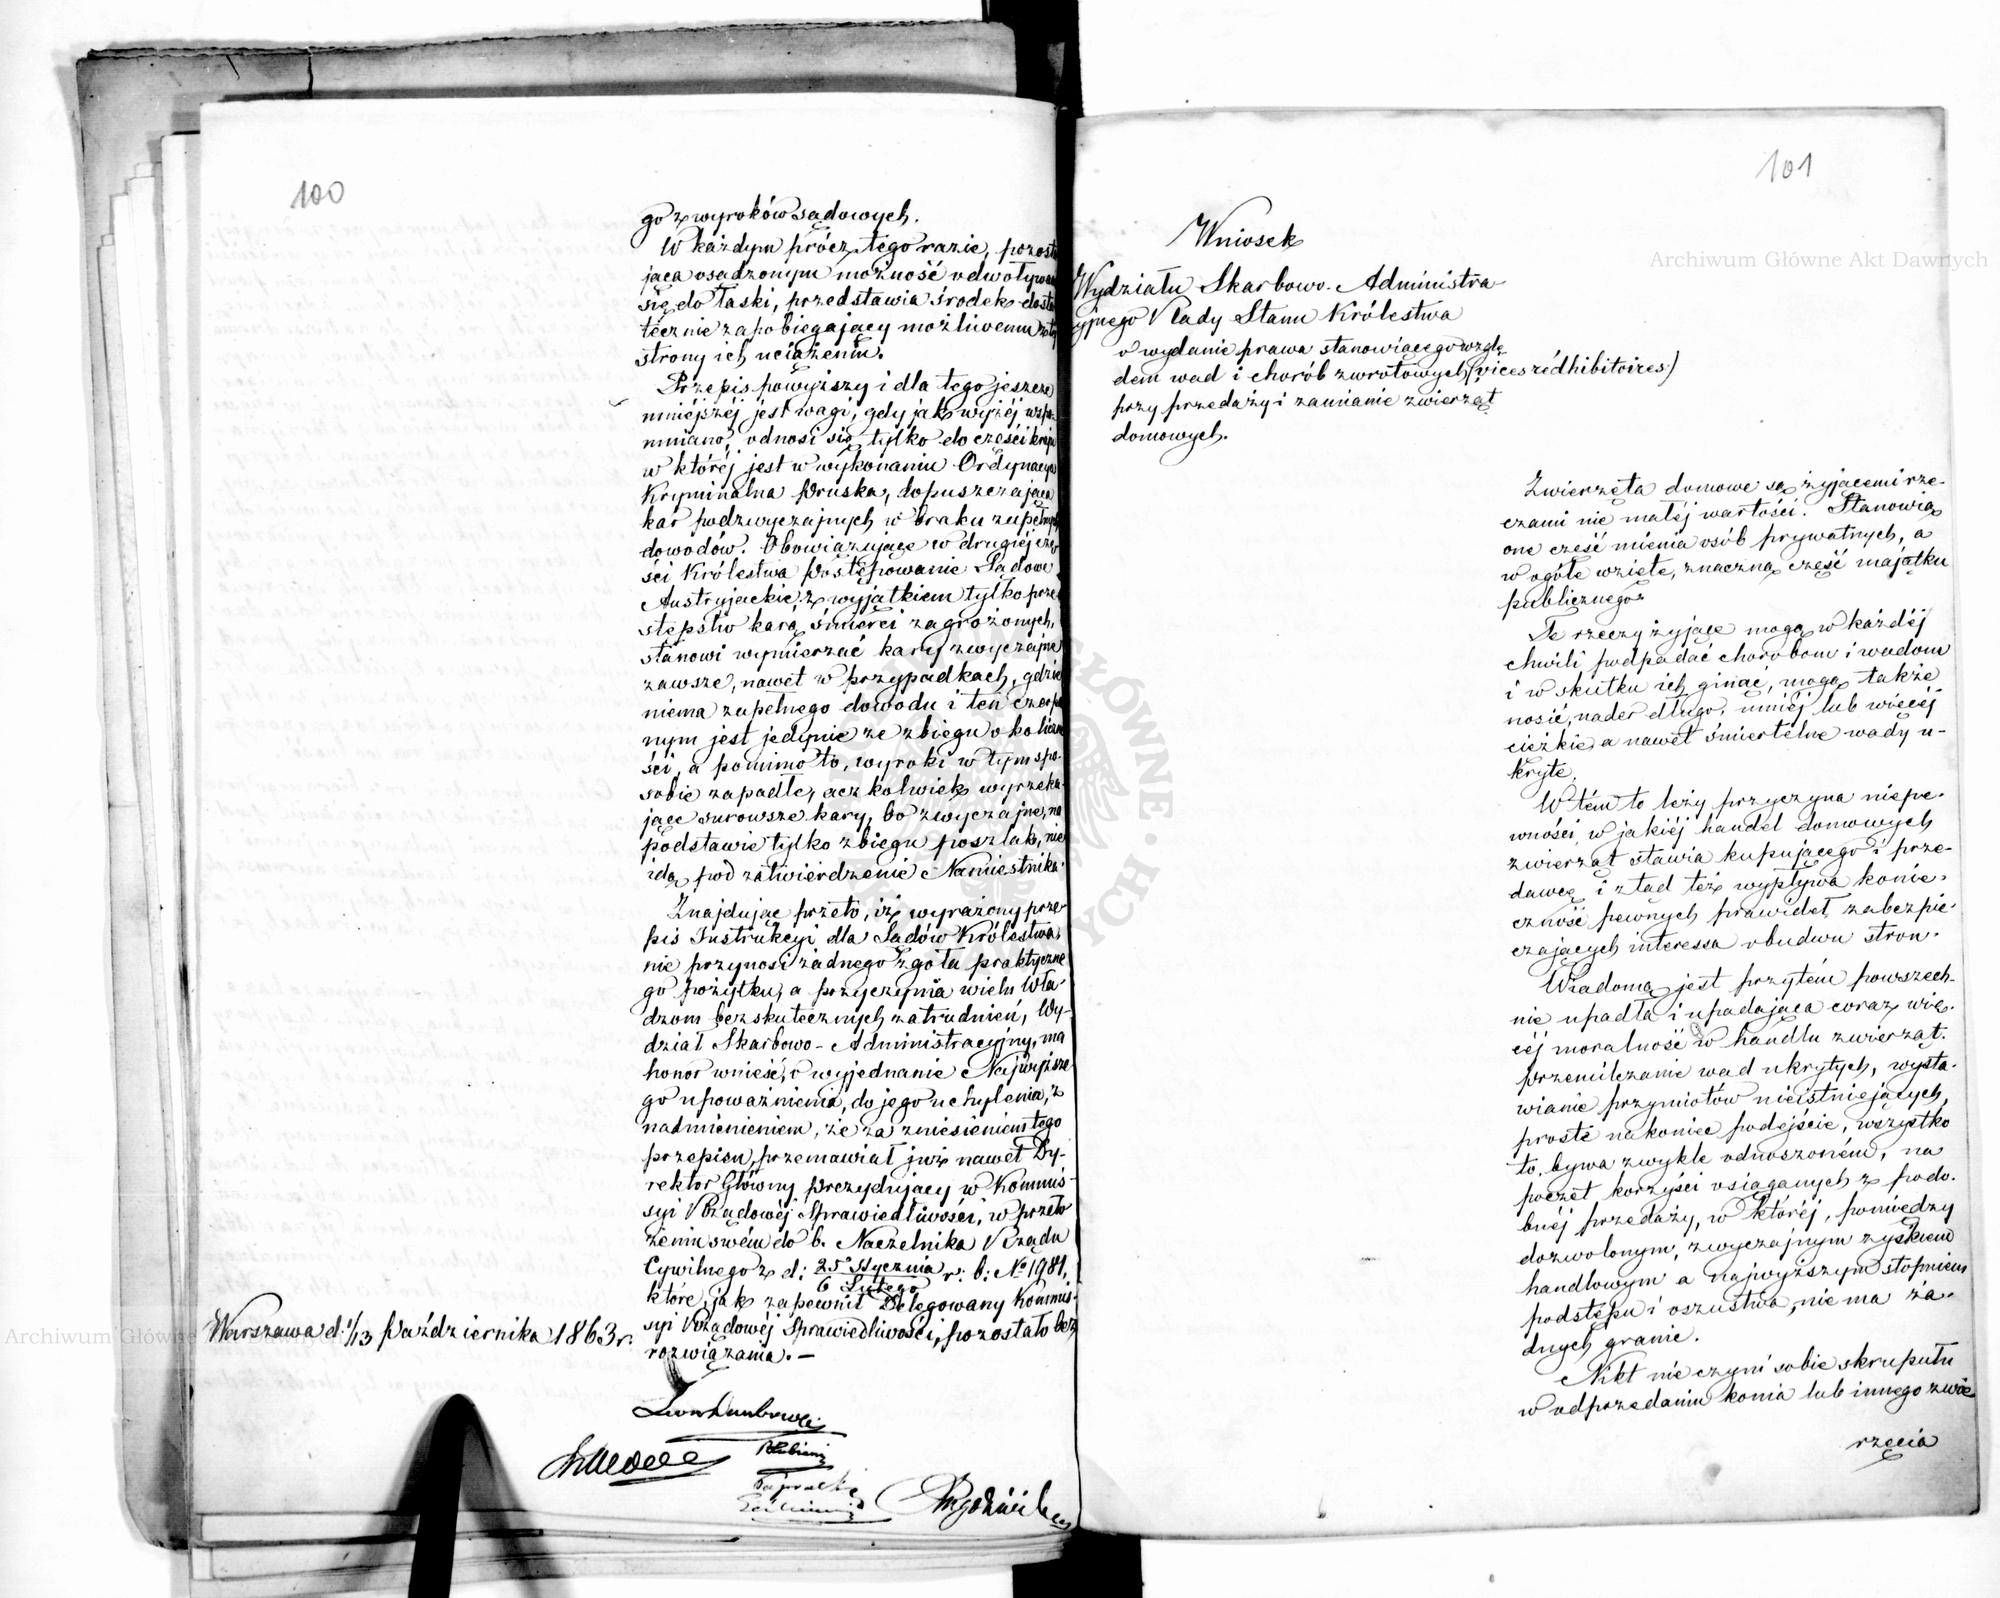 100
go z wyroków sądowych.
W każdym prócz tego razie, pozosta
jąca osądzonym możność odwoływa
się do łaski, przedstawia środek dosta
tecznie zapobiegający możliwemu z tej
strony ich uciążeniu.
Przepis powyższy i dla tego jeszcze
mniejszéj jest wagi, gdy jak wyżéj wspo-
mniano, odnosi się tylko do części kraju
w któréj jest w wykonaniu Ordynacya
Kryminalna Pruska, dopuszczająca
kar nadzwyczajnych w braku zupełnych
dowodów. Obowiązujące w drugiéj czę-
ści Królestwa Postępowanie Sądowe
Austryjackie, z wyjątkiem tylko prze
stępstw karą śmierci zagrożonych,
stanowi wymierzać kary zwyczajne
zawsze, nawet w przypadkach, gdzie
niema zupełnego dowodu i ten czerpa
nym jest jedynie ze zbiegu okoliczno
ści, a pomimo to, wyroki w tym spo-
sobie zapadłe, acz kolwiek wyrzeka-
jące surowsze kary, bo zwyczajne, na
podstawie tylko zbiegu poszlak, nie
idą pod zatwierdzenie Namiestnika.
Znajdując przeto, iż wyrażony prze-
pis Instrukcyi dla Sądów Królestwa,
nie przynosi żadnego zgoła praktyczne
go pożytku, a przyczynia wielu Wła-
dzom bezskutecznych zatrudnień, Wy-
dział Skarbowo-Administracyjny, ma
honor wnieść, o wyjednanie Najwyższe
go upoważnienia, do jego uchylenia, z
nadmienieniem, że za zniesieniem tego
przepisu, przemawiał już nawet Dy-
rektor Główny Prezydujący w Kommis-
syi Rządowéj Sprawiedliwości, w przeło
żeniu swém do b. Naczelnika Rządu
Cywilnego z d: 25 Stycznia r: b: No 1981,
6 Lutego
które, jak zapewnił Delegowany Kommis-
syi Rządowéj Sprawiedliwości, pozostało bez
rozwiązania. —
Warszawa d: 1/13 Października 1863 r.
101
Wniosek
Wydziału Skarbowo-Administra
yjnego Rady Stanu Królestwa
o wydanie prawa stanowiącego wzglę
dem wad i chorób zwrotowych (vices rédhibitoires)
przy przedaży i zamianie zwierząt
domowych.
Zwierzęta domowe są żyjącemi rze-
czami nie małéj wartości. Stanowią
one część mienia osób prywatnych, a
w ogóle wzięte, znaczną część majątku
publicznego.
Te rzeczy żyjące mogą w każdéj
chwili podpadać chorobom i wadom
i w skutku ich ginąć, mogą także
nosić, nader długo, mniéj lub więcéj
ciężkie, a nawet śmiertelne wady u-
kryte.
W tém to leży przyczyna niepe-
wności, w jakiéj handel domowych
zwierząt stawia kupującego i prze-
dawcę, i ztąd też wypływa konie-
czność pewnych prawideł, zabezpie-
czających interessa obudwu stron.
Wiadomą jest przytém powszech-
nie upadła i upadająca coraz wię-
céj moralność w handlu zwierząt.
Przemilczanie wad ukrytych, wysta-
wianie przymiotów nieistniejących,
proste nakoniec podejście, wszystko
to, bywa zwykle odnoszoném, na
poczet korzyści osiąganych z podo-
bnéj przedaży, w któréj, pomiędzy
dozwolonym, zwyczajnym zyskiem
handlowym a najwyższym stopniem
podstępu i oszustwa, nie ma ża-
dnych granic.
Nikt nie czyni sobie skrupułu
w odprzedaniu konia lub innego zwie
rzęcia
Archiwum Główne Akt Dawnych